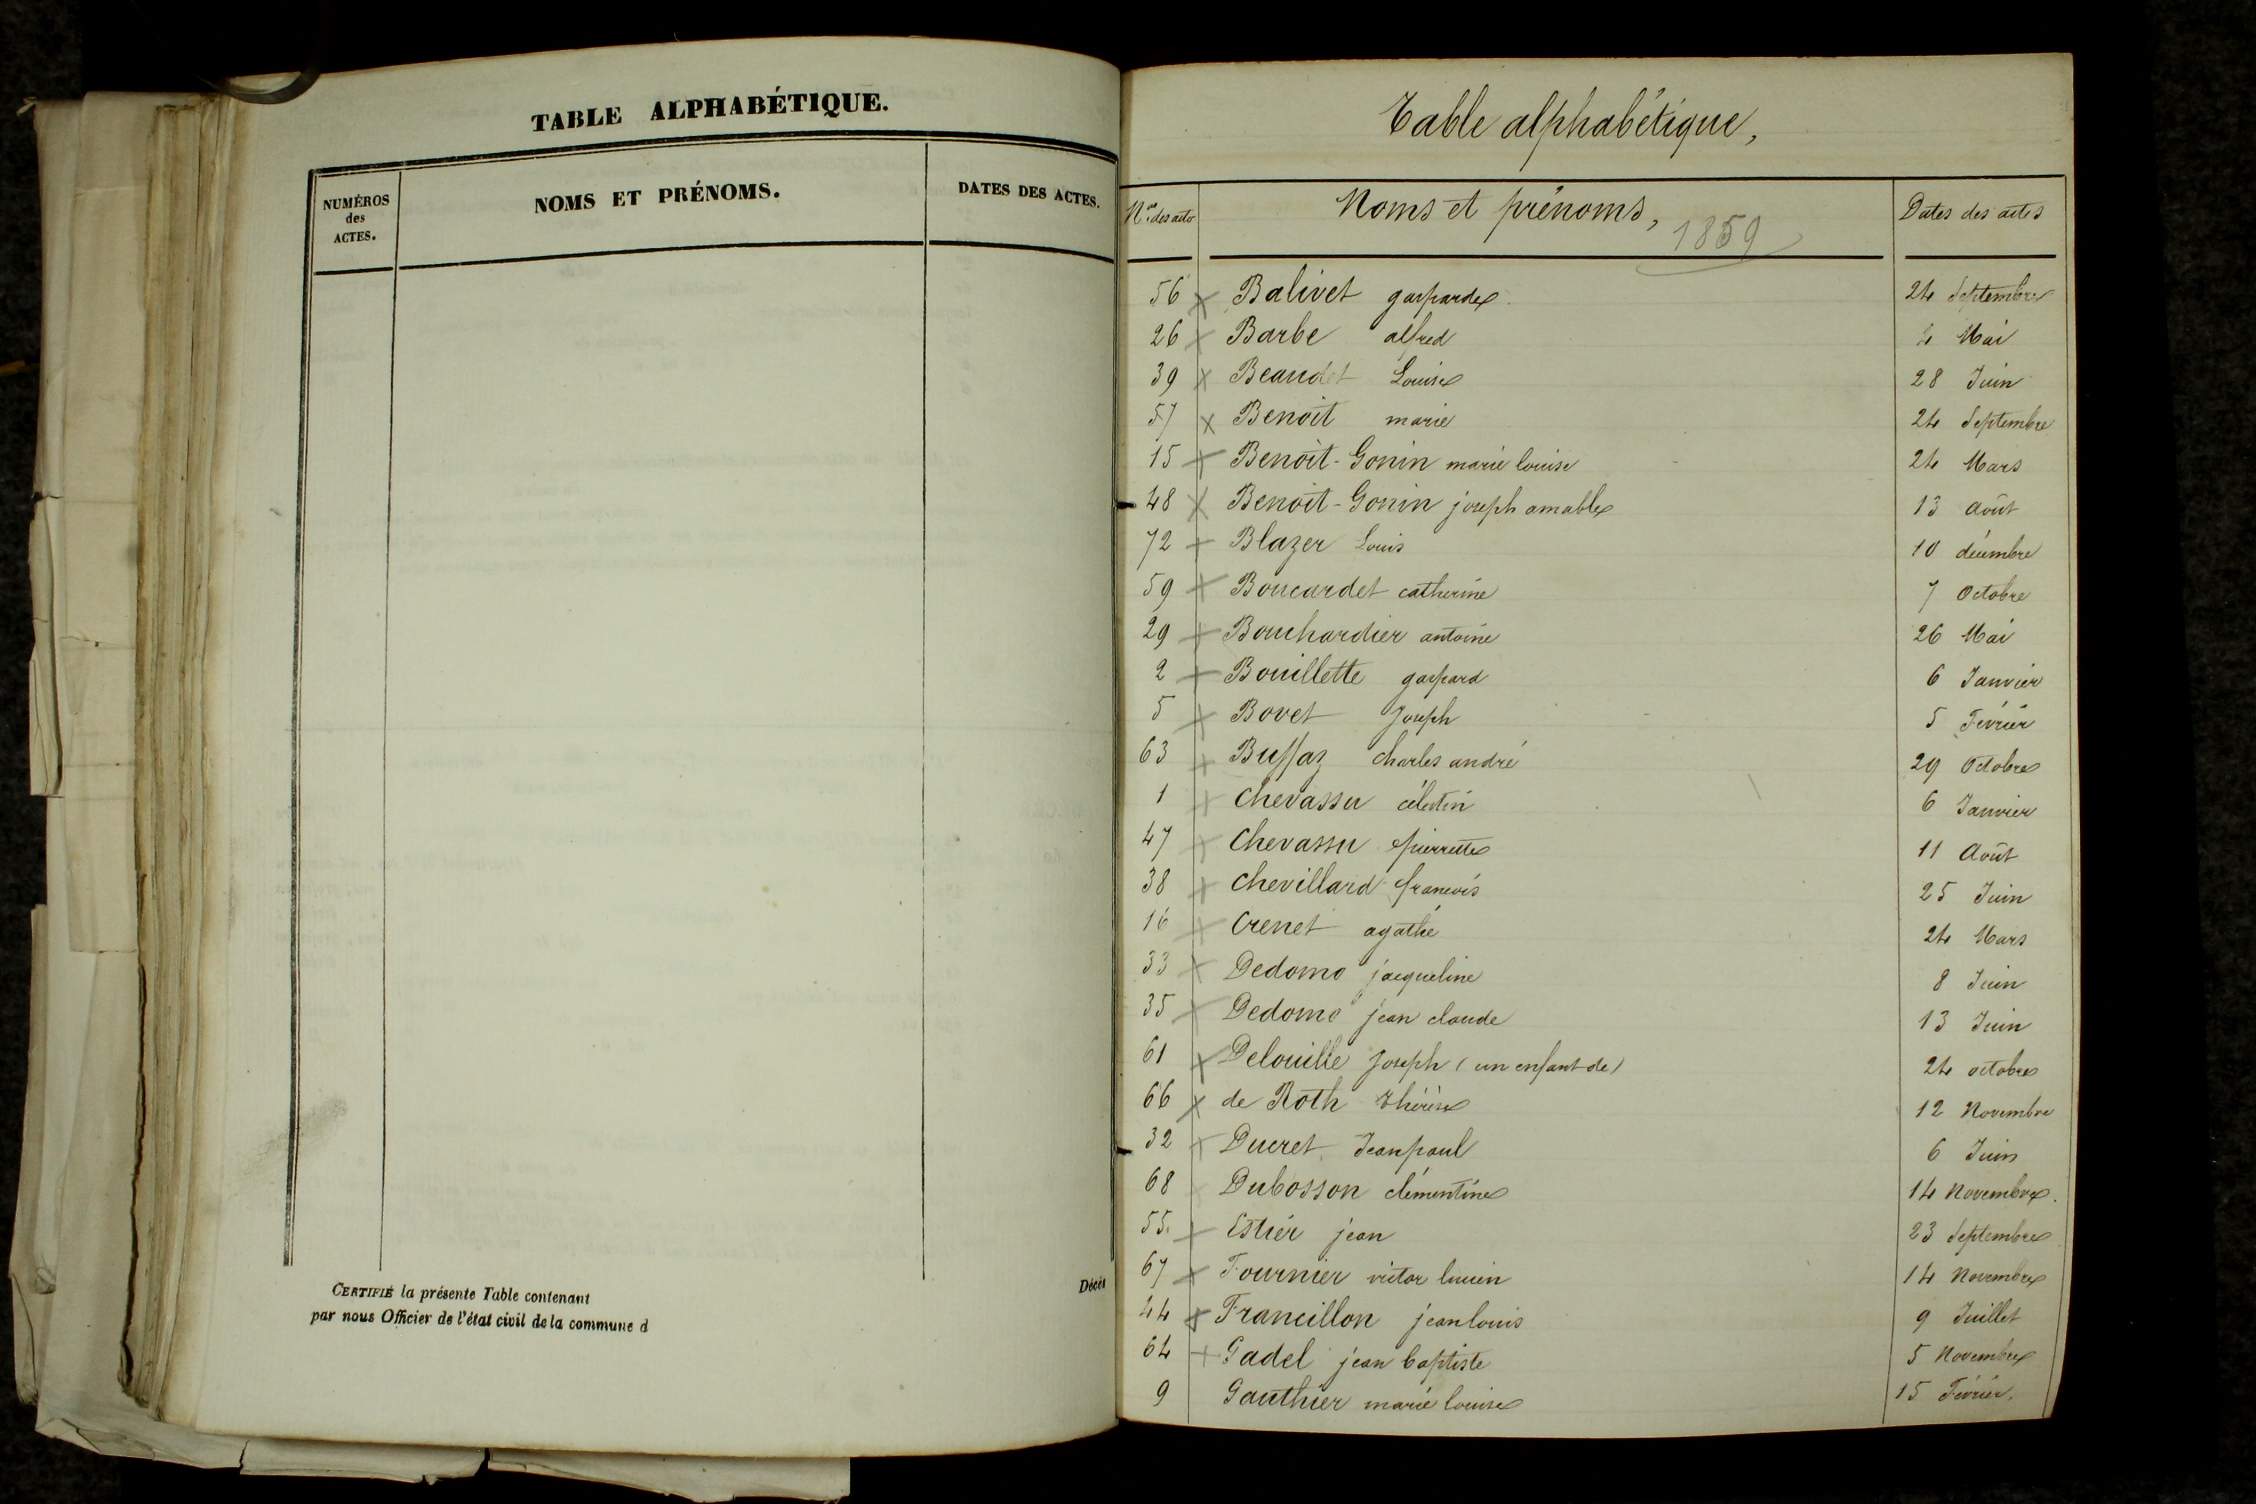 TABLE ALPHABÉTIQUE.
NUMÉROS des ACTES.
NOMS ET PRÉNOMS.
DATES DES ACTES.
CERTIFIÉ la présente Table contenant Décès
par nous Officier de l'état civil de la commune d
Table alphabétique,
Nos des actes Noms et prénoms, Dates des actes
1859
56 x Balivet gasparde 24 Septembre
26 x Barbe alfred 4 Mai
39 x Beaudet Louise 28 Juin
57 x Benoit marie 24 Septembre
15 x Benoit-Gonin marie louise 24 Mars
48 x Benoit-Gonin joseph amable 13 août
72 x Blazer Louis 10 décembre
59 x Boucardet catherine 7 Octobre
29 x Bouchardier antoine 26 Mai
2 x Bouillette gaspard 6 Janvier
5 x Bovet Joseph 5 Février
63 x Buffaz charles andré 29 Octobre
1 x Chevassu célestin 6 Janvier
47 x Chevassu pierrette 11 Août
38 x Chevillard francois 25 Juin
16 x Crenet agathe 24 Mars
33 x Dedomo jacqueline 8 Juin
35 x Dedomo jean claude 13 Juin
61 x Delouille Joseph (un enfant de) 24 octobre
66 x de Roth Thérèse 12 Novembre
32 x Ducret Jean paul 6 Juin
68 Dubosson clémentine 14 Novembre.
55. x Estier jean 23 Septembre
67 x Fournier victor lucien 14 Novembre
44 x Francillon jean louis 9 Juillet
64 x Gadel jean baptiste 5 Novembre
9 Gauthier marie louise 15 Février.